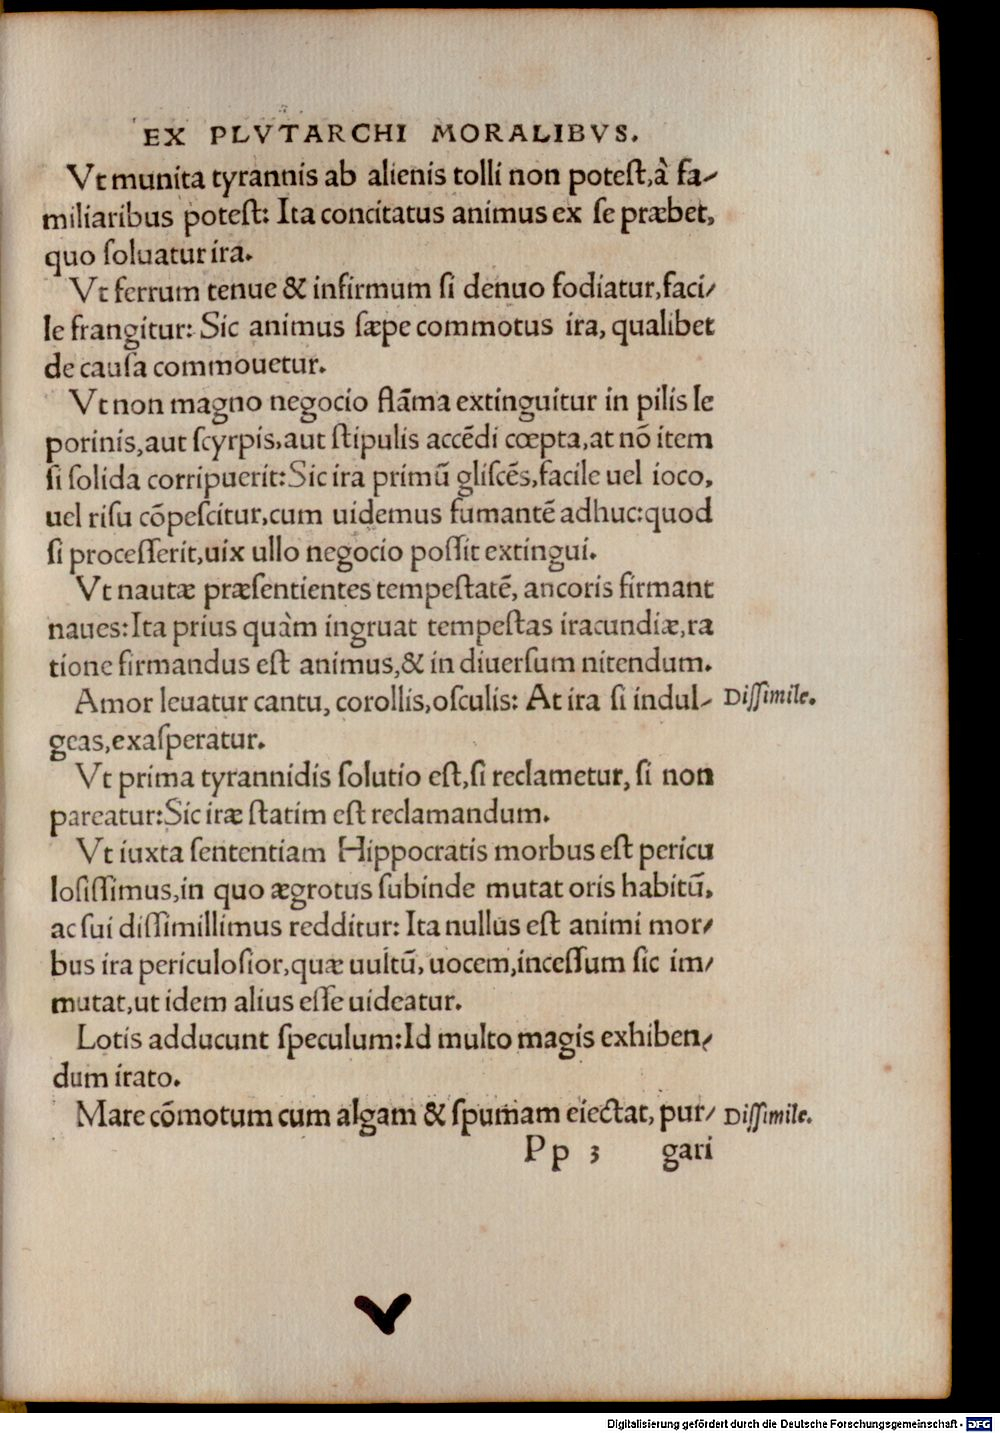 EX PLVTARCHI MORALIBVS.
Vt munita tyrannis ab alienis tolli non poteſt,à fa-
miliaribus poteſt: Ita concitatus animus ex ſe præbet,
quo ſoluatur ira.
Vt ferrum tenue & infirmum ſi denuo fodiatur,faci-
le frangitur: Sic animus ſæpe commotus ira, qualibet
de cauſa commouetur.
Vt non magno negocio flãma extinguitur in pilis le
porinis,aut ſcyrpis,aut ſtipulis accẽdi cœpta,at nõ item
ſi ſolida corripuerit:Sic ira primũ gliſcẽs,facile uel ioco,
uel riſu cõpeſcitur,cum uidemus fumantẽ adhuc:quod
ſi proceſſerit,uix ullo negocio poſſit extingui.
Vt nautæ præſentientes tempeſtatẽ, ancoris firmant
naues:Ita prius quàm ingruat tempeſtas iracundiæ,ra
tione firmandus eſt animus,& in diuerſum nitendum.
Amor leuatur cantu, corollis,oſculis: At ira ſi indul- Diſſimile.
geas,exaſperatur.
Vt prima tyrannidis ſolutio eſt,ſi reclametur, ſi non
pareatur:Sic iræ ſtatim eſt reclamandum.
Vt iuxta ſententiam Hippocratis morbus eſt pericu
loſiſſimus,in quo ægrotus ſubinde mutat oris habitũ,
ac ſui diſſimillimus redditur: Ita nullus eſt animi mor-
bus ira periculoſior,quæ uultũ, uocem,inceſſum ſic im-
mutat,ut idem alius eſſe uideatur.
Lotis adducunt ſpeculum:Id multo magis exhiben-
dum irato.
Mare cõmotum cum algam & ſpumam eiectat, pur- Diſſimile.
Pp 3 gari
Digitalisierung gefördert durch die Deutsche Forschungsgemeinschaft - DFG